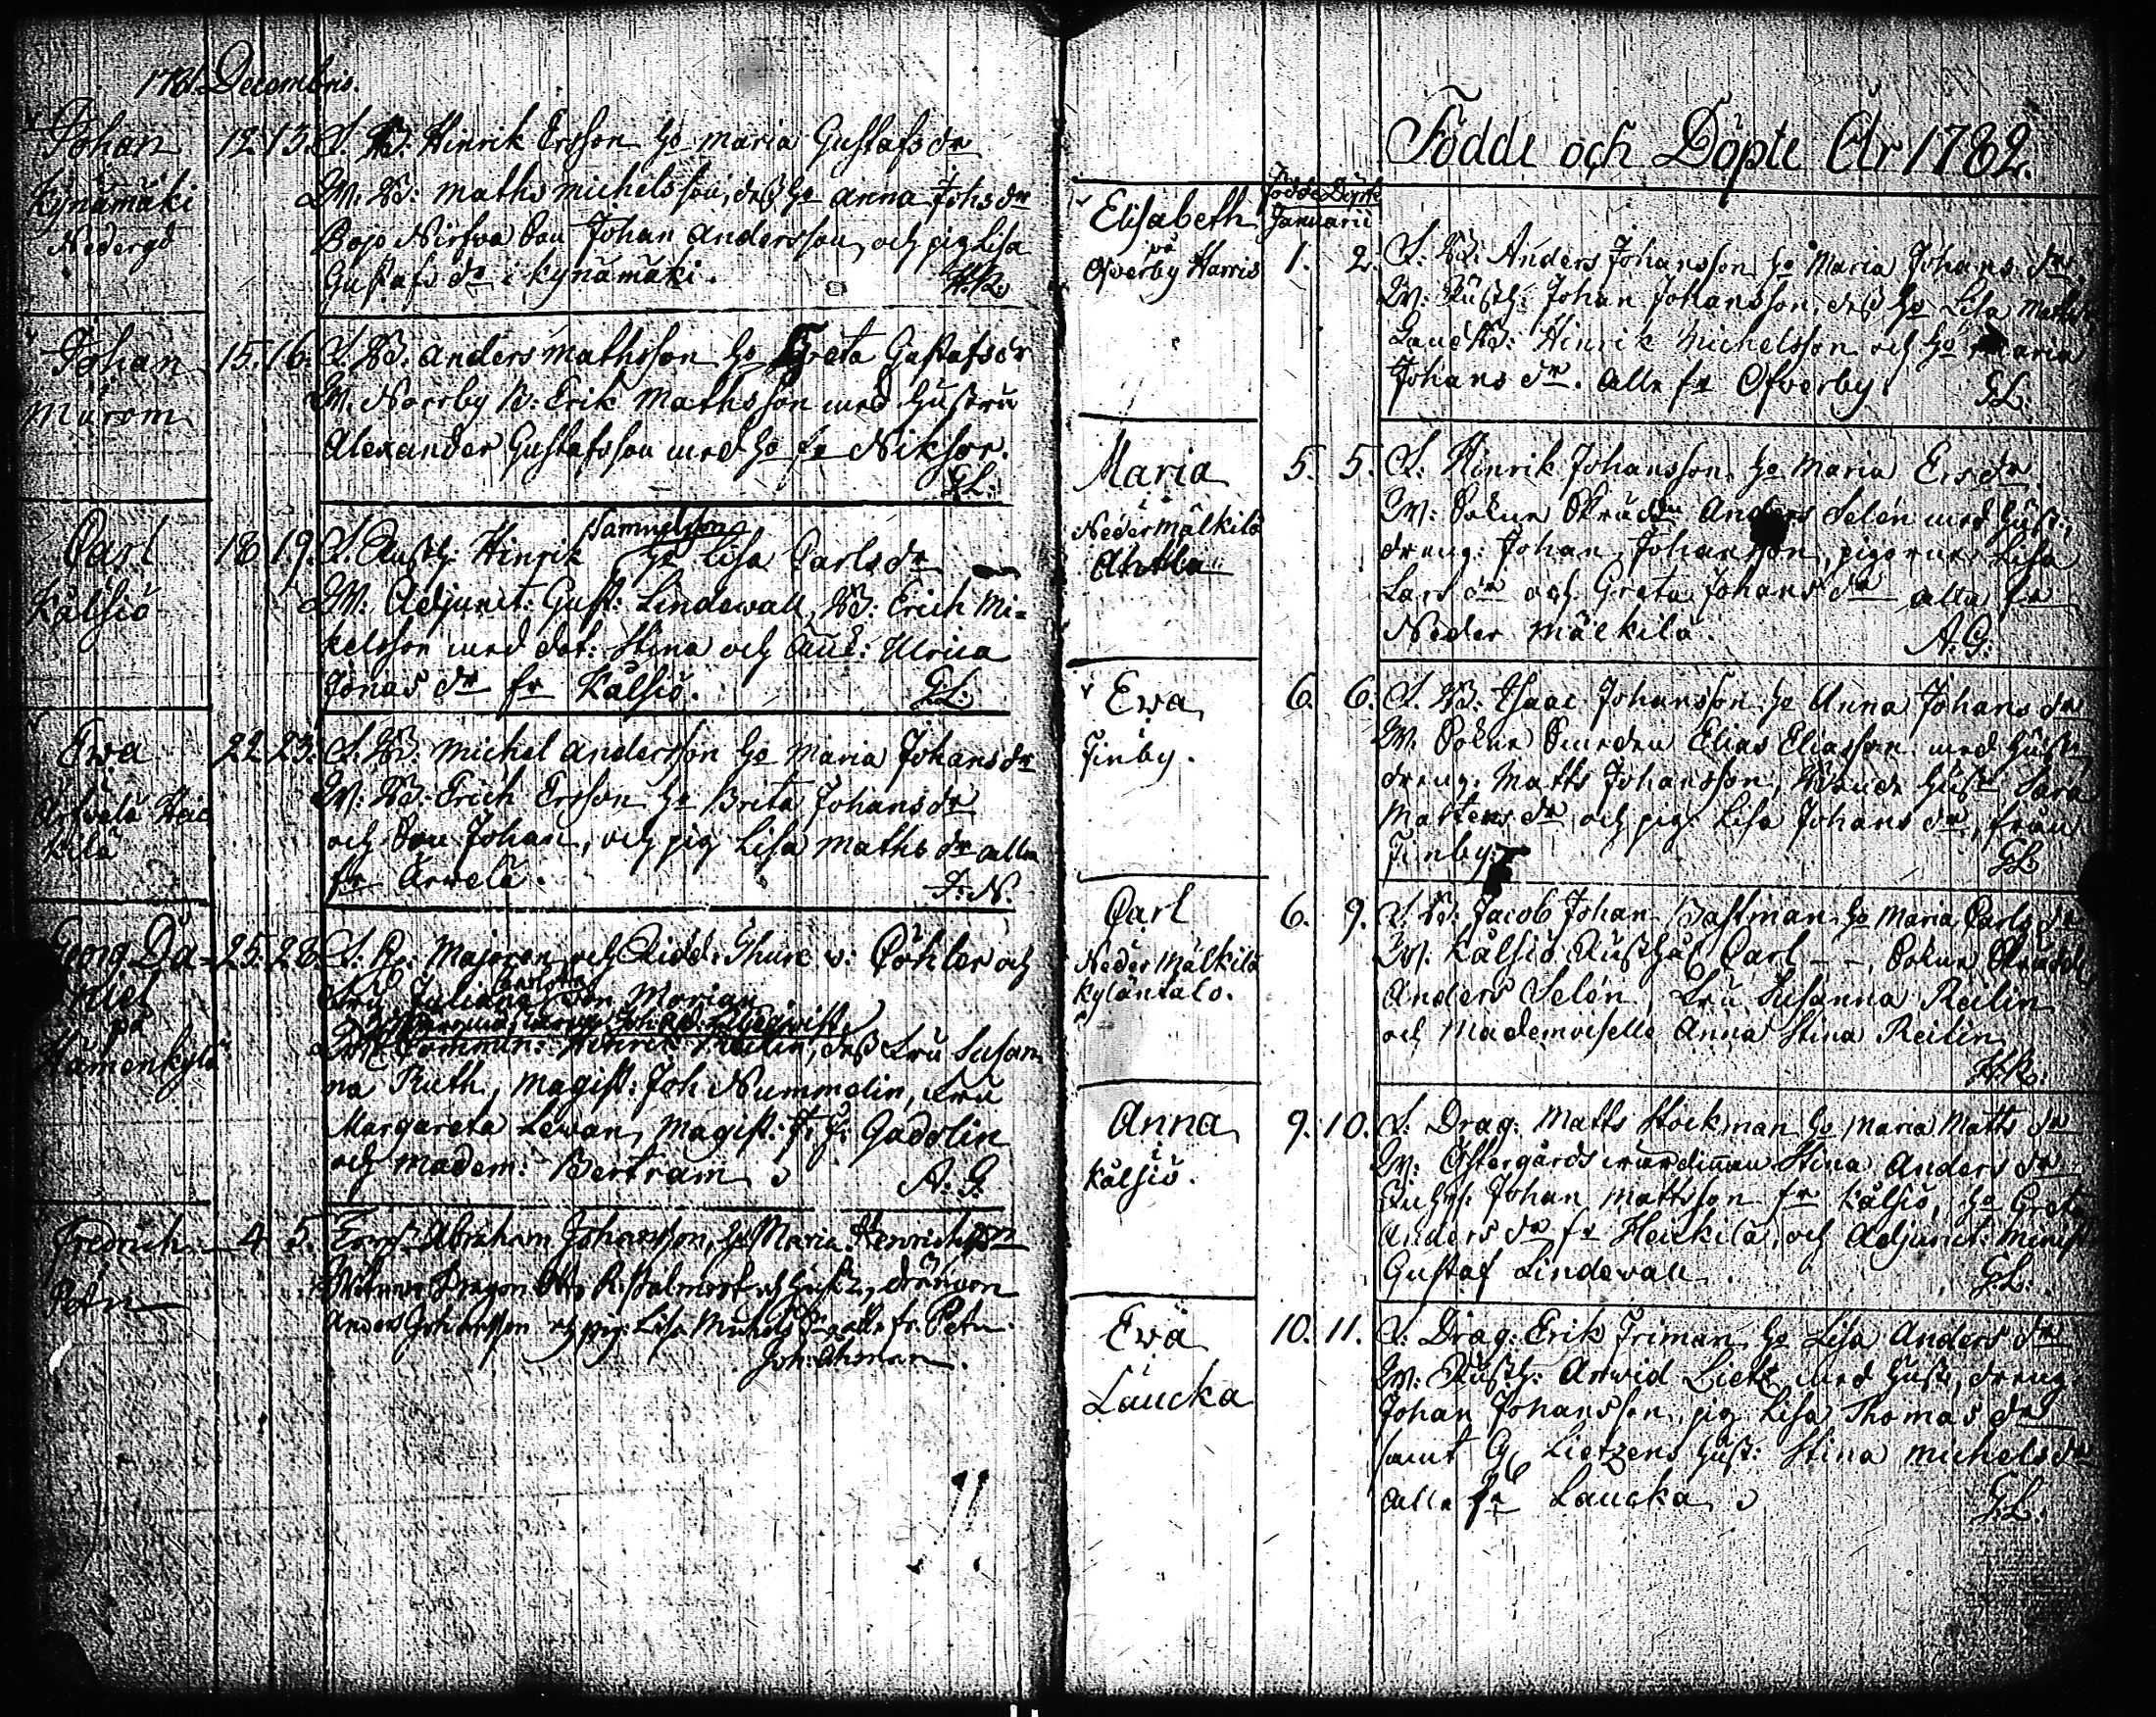 1781. Decembris.
Johan
Kynämäki
Nedergd
12. 13. F. B: Hinrik Ersson ho Maria Gustafs dr
W. B: Maths Michelsson, dess ho Anna Johs dr
Bojo Nirfva Son Johan Andersson, och pig Lisa
Gustafs dr i Kynämäki.
H.R.
Johan
Murom
15. 16. F. B: Anders Mathsson ho Greta Gustafsdr
W. Norrby B: Erik Mathsson med hustru
Alexander Gustafsson med ho fr Niksor.
G.L.
Carl
Kålsjö
18 19. F. Rusth: Hinrik Samuelsson ho Lisa Carls dr
W: Adjunct: Gust: Lindewall, B: Erich Mi=
kelsson med dot: Stina och Enk: Ulrica
Jonas dr fr Kålsjö.
G.L.
Ewa
Arwela Hei
kilä
22 23. F. B: Michel Andersson ho Maria Johans dr
W: B: Erich Ersson ho Brita Johans dr
och Son Johan, och pig Lisa Maths dr alla
fr Arwela.
J. N.
Georg Da=
niel
på
Hämenkylä
25. 28. F. Majoren och Ridd: Thure v: Cöhler och
Fru Juliana Carlotta von Morian
W: Hinrik Reilin, dess Fru Susan
na Ruth, Magist: Joh Nummelin, Fru
Margareta Lewan, Magist: J: J: Gadolin
och Madem: Bertram
A. G.
Fredrich
Petn
4 5. Abraham Johansson, ho Maria Henrichs dr
Wittnen Dragon Palmort och hustr, drängen
Anders Johansson och pig: Lisa Michels dr alla fr. Petn.
Joh: Ahman.
Födde och Döpte År 1782.
Födde Döpte
Januarii
Elisabeth
på
Ofverby Harris
1. 2. F. B: Anders Johansson ho Maria Johans dr
W: Rusth: Johan Johansson, dess ho Lisa Maths
LandtB: Hinrik Michelsson och ho Maria
Johans dr. alla fr Ofverby.
G.L.
Maria
i
Neder Mälkilä
Ahtila
5. 5. F. Hinrik Johansson ho Maria Ers dr
W: Sokne Skrädd Anders Selén med hust:
dreng: Johan Johansson, pigorne Lisa
Lars dr och Greta Johans dr alla fr
Neder Mälkilä.
A. G.
Ewa
i
Finby.
6. 6. F. B: Isaac Johansson ho Anna Johans dr
W. Sokne Smeden Elias Eliasson med hust:
dreng: Matts Johansson, Bonde hust: Sara
Mattens dr och pig Lisa Johans dr, från
Finby.
G.L.
Carl
Neder Mälkilä
Kyläntalo.
6. 9. F. B: Jacob Johan Bastman ho Maria Carls dr
W: Kålsjö Rusthål Carl - -, Sokne Skrädd
Anders Selén, Fru Susanna Reilin
och Mademoiselle Anna Stina Reilin
H.R.
Anna
i
Kålsjö.
9. 10. F: Drag: Matts Stockman ho Maria Matts dr
W: Östergårds wärdinnan Stina Anders dr
Johan Mattsson fr Kålsjö, ho Greta
Anders dr fr Heickilä, och Adjunct: Minist
Gustaf Lindewall
G.L.
Ewa
i
Laucka
10. 11. F: Drag: Erik Friman ho Lisa Anders dr
W: Rusth: Arwid Lietz med hust:, dreng
Johan Johansson, pig Lisa Thomas dr
samt G. Lietzens hust: Stina Michels dr
alla fr Laucka
G.L.